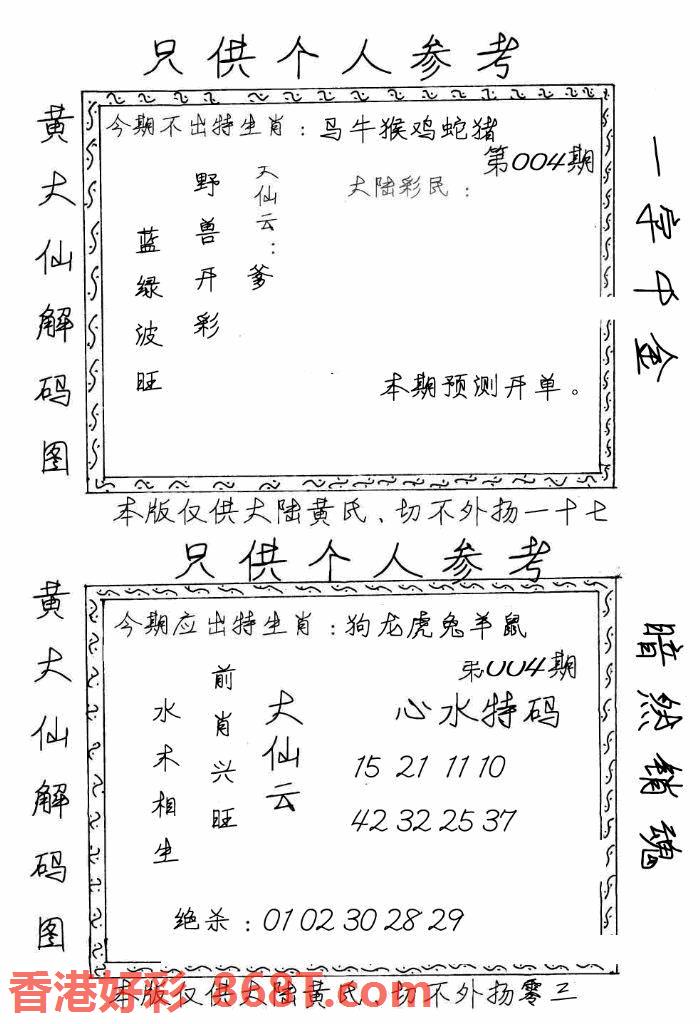 只供个人参考
黄大仙解码图
今期不出特生肖：马牛猴鸡蛇猪
第004期
一字千金
大陆彩民：
大仙云：爹
野兽开彩
蓝绿波旺
本期预测开单。
本版仅供大陆黄氏、切不外扬一十七
只供个人参考
黄大仙解码图
今期应出特生肖：狗龙虎兔羊鼠
第004期
暗然销魂
心水特码
大仙云
前肖兴旺
水木相生
15 21 11 10
42 32 25 37
绝杀：01 02 30 28 29
本版仅供大陆黄氏、切不外扬零三
香港好彩 868T.com